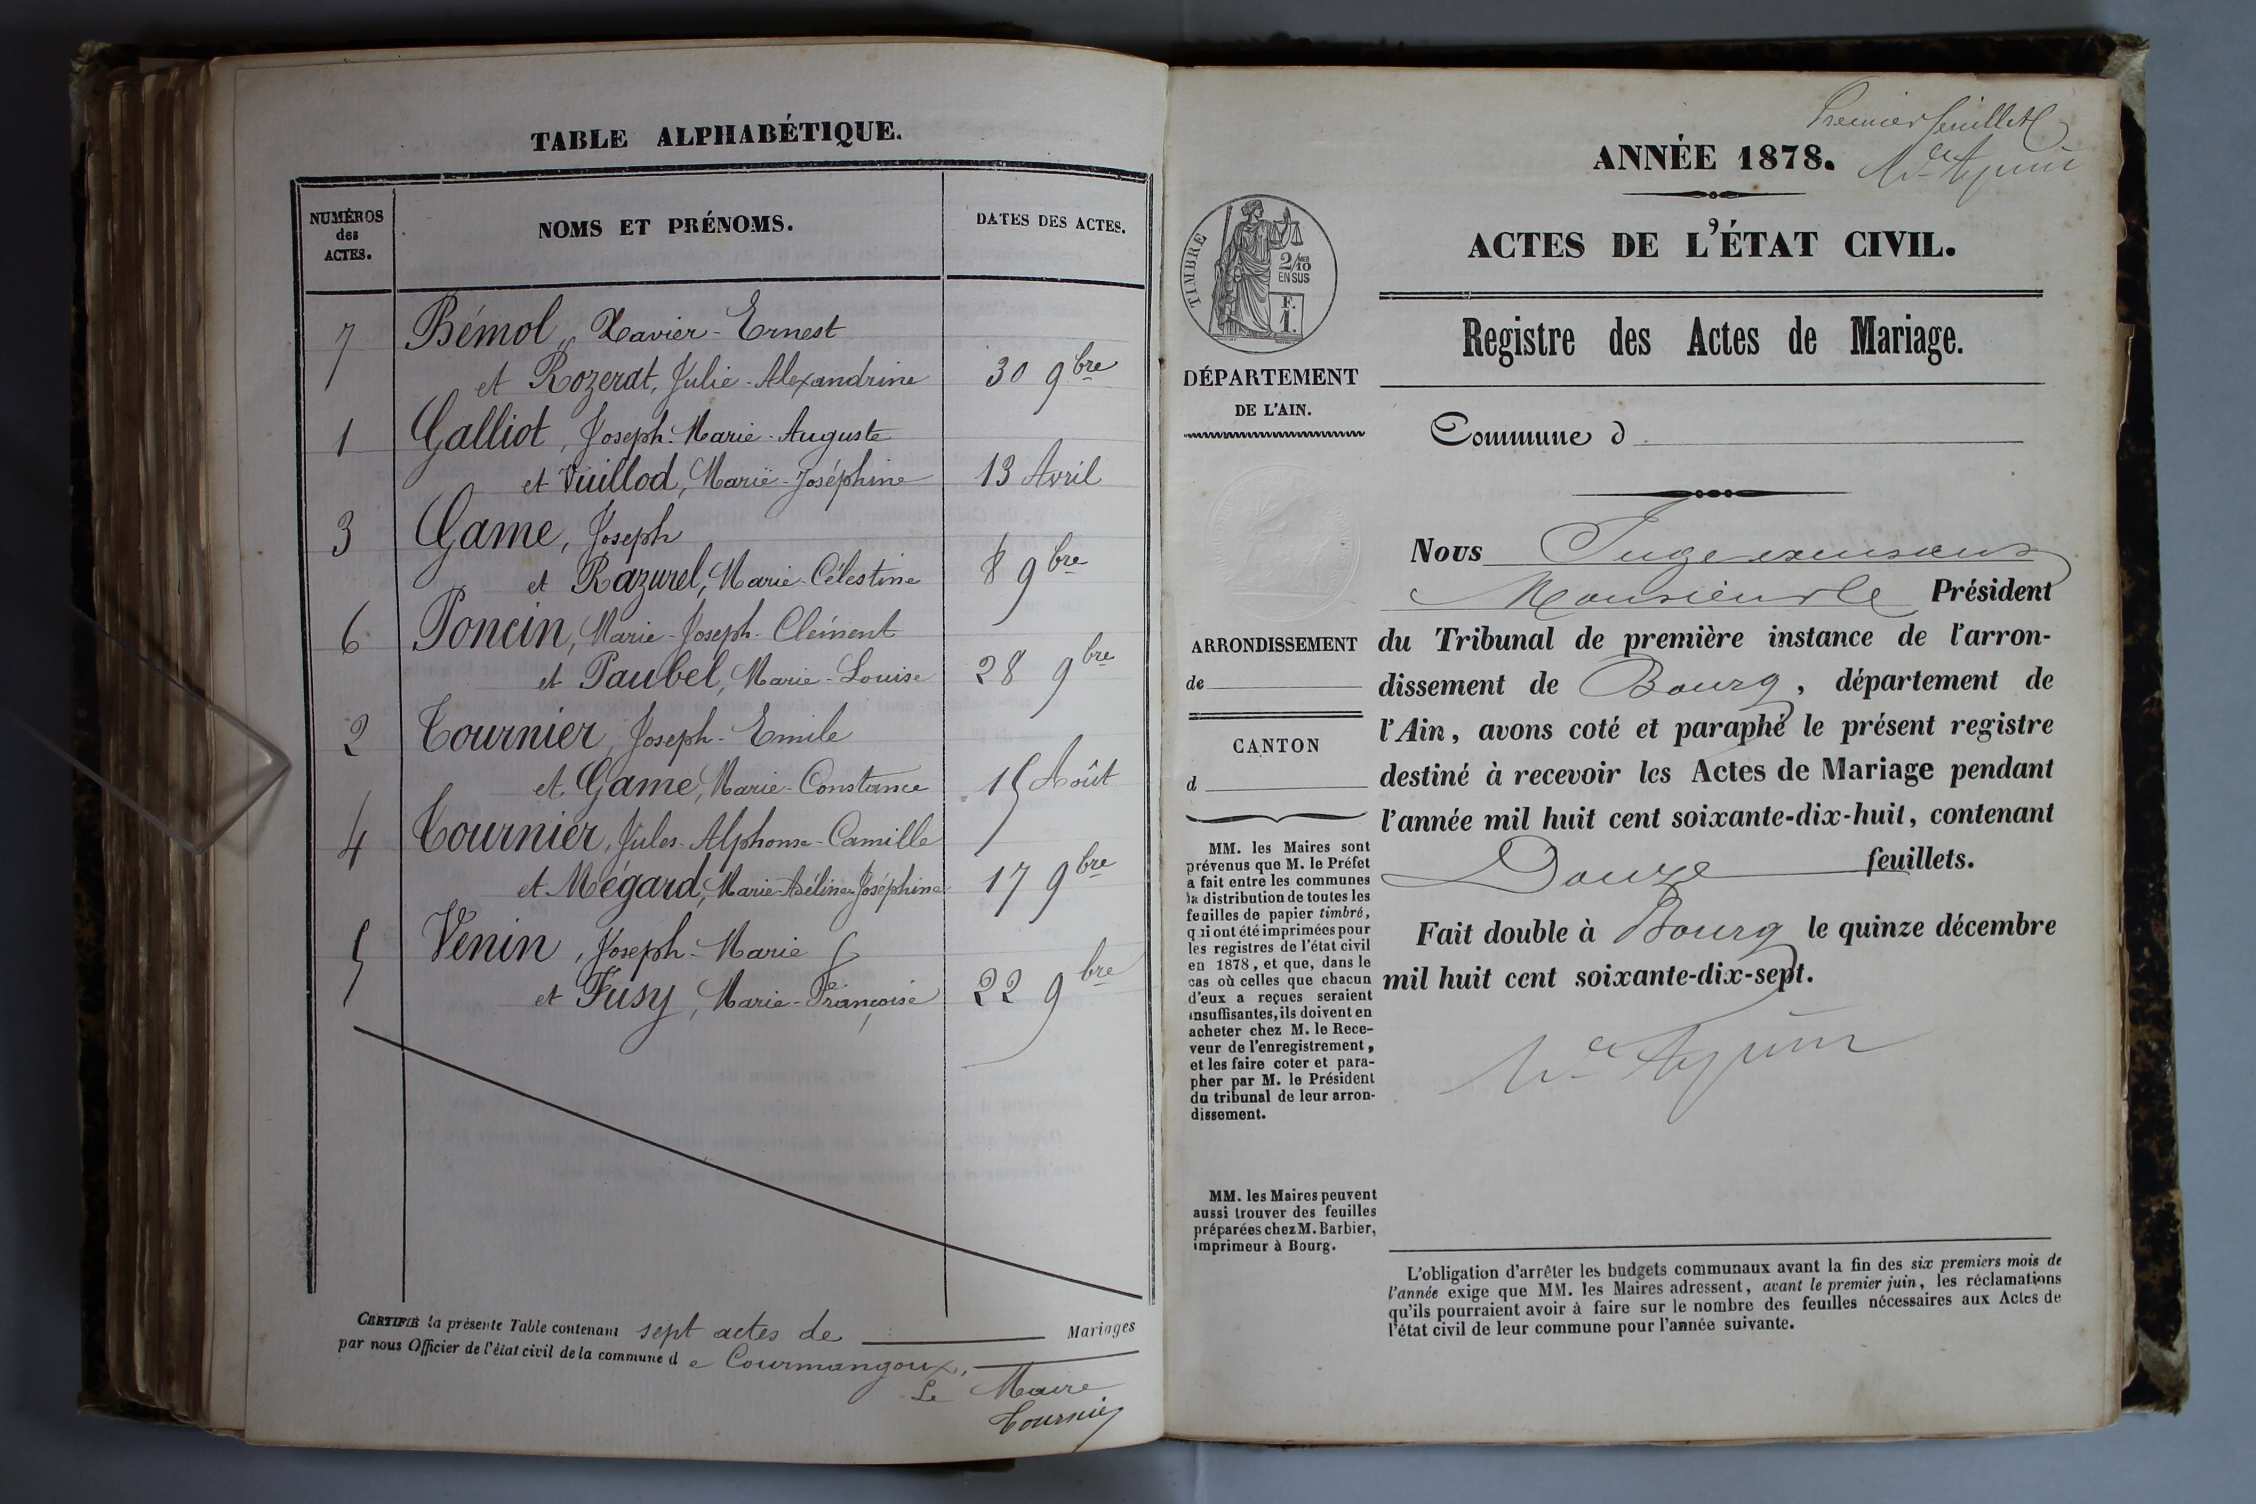 TABLE ALPHABÉTIQUE.
NUMÉROS
des
ACTES.
NOMS ET PRÉNOMS.
DATES DES ACTES.
7 Bémol, Xavier-Ernest
et Rozerat, Julie-Alexandrine 30 9bre
1 Galliot, Joseph-Marie-Auguste
et Vuillod, Marie-Joséphine 13 Avril
3 Game, Joseph
et Razurel, Marie-Célestine 8 9bre
6 Poncin, Marie-Joseph-Clément
et Paubel, Marie-Louise 28 9bre
2 Tournier, Joseph-Emile
et Game, Marie-Constance 15 Août
4 Tournier, Jules-Alphonse-Camille
et Mégard, Marie-Aséline-Joséphine 17 9bre
5 Venin, Joseph-Marie
et Fusy, Marie-Françoise 22 9bre
CERTIFIÉ la présente Table contenant sept actes de Mariages
par nous Officier de l'état civil de la commune de Courmangoux,
Le Maire
Tournier
Premier feuillet
ANNÉE 1878.
ACTES DE L'ÉTAT CIVIL.
Registre des Actes de Mariage.
TIMBRE
2/10
EN SUS
F.
1.
DÉPARTEMENT
DE L'AIN.
Commune d
Nous Juge
Monsieur le Président
du Tribunal de première instance de l'arron-
dissement de Bourg, département de
l'Ain, avons coté et paraphé le présent registre
destiné à recevoir les Actes de Mariage pendant
l'année mil huit cent soixante-dix-huit, contenant
Douze feuillets.
Fait double à Bourg le quinze décembre
mil huit cent soixante-dix-sept.
ARRONDISSEMENT
de
CANTON
d
MM. les Maires sont
prévenus que M. le Préfet
a fait entre les communes
la distribution de toutes les
feuilles de papier timbré,
qui ont été imprimées pour
les registres de l'état civil
en 1878, et que, dans le
cas où celles que chacun
d'eux a reçues seraient
insuffisantes, ils doivent en
acheter chez M. le Rece-
veur de l'enregistrement,
et les faire coter et para-
pher par M. le Président
du tribunal de leur arron-
dissement.
MM. les Maires peuvent
aussi trouver des feuilles
préparées chez M. Barbier,
imprimeur à Bourg.
L'obligation d'arrêter les budgets communaux avant la fin des six premiers mois de
l'année exige que MM. les Maires adressent, avant le premier juin, les réclamations
qu'ils pourraient avoir à faire sur le nombre des feuilles nécessaires aux Actes de
l'état civil de leur commune pour l'année suivante.